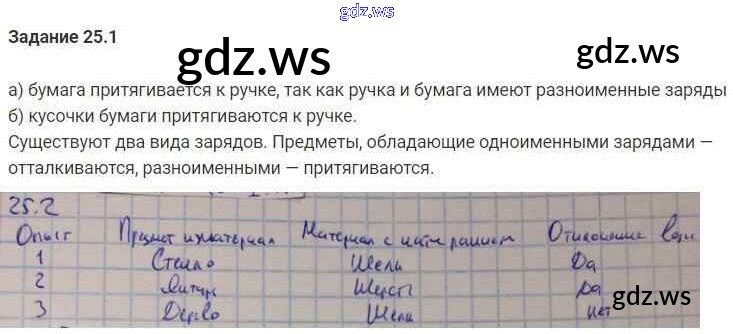 gdz.ws
Задание 25.1
gdz.ws gdz.ws
а) бумага притягивается к ручке, так как ручка и бумага имеют разноименные заряды
б) кусочки бумаги притягиваются к ручке.
Существуют два вида зарядов. Предметы, обладающие одноименными зарядами —
отталкиваются, разноименными — притягиваются.
25.2
Опыт Предмет и материал Материал с натиранием Отклонение воды
1 Стекло Шелк Да
2 Янтарь Шерсть Да
3 Дерево Шелк Нет
gdz.ws